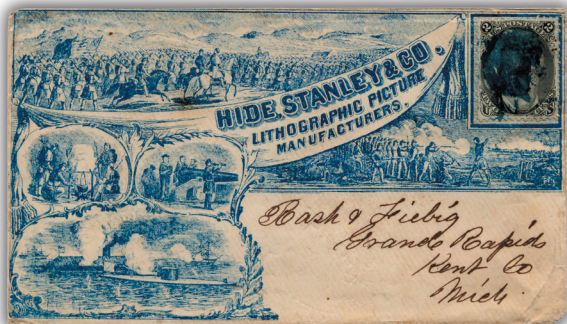 HIDE, STANLEY & CO.
LITHOGRAPHIC PICTURE
MANUFACTURERS.
2 POSTAGE 2
Bash & Fiebig
Grand Rapids
Kent Co
Mich.